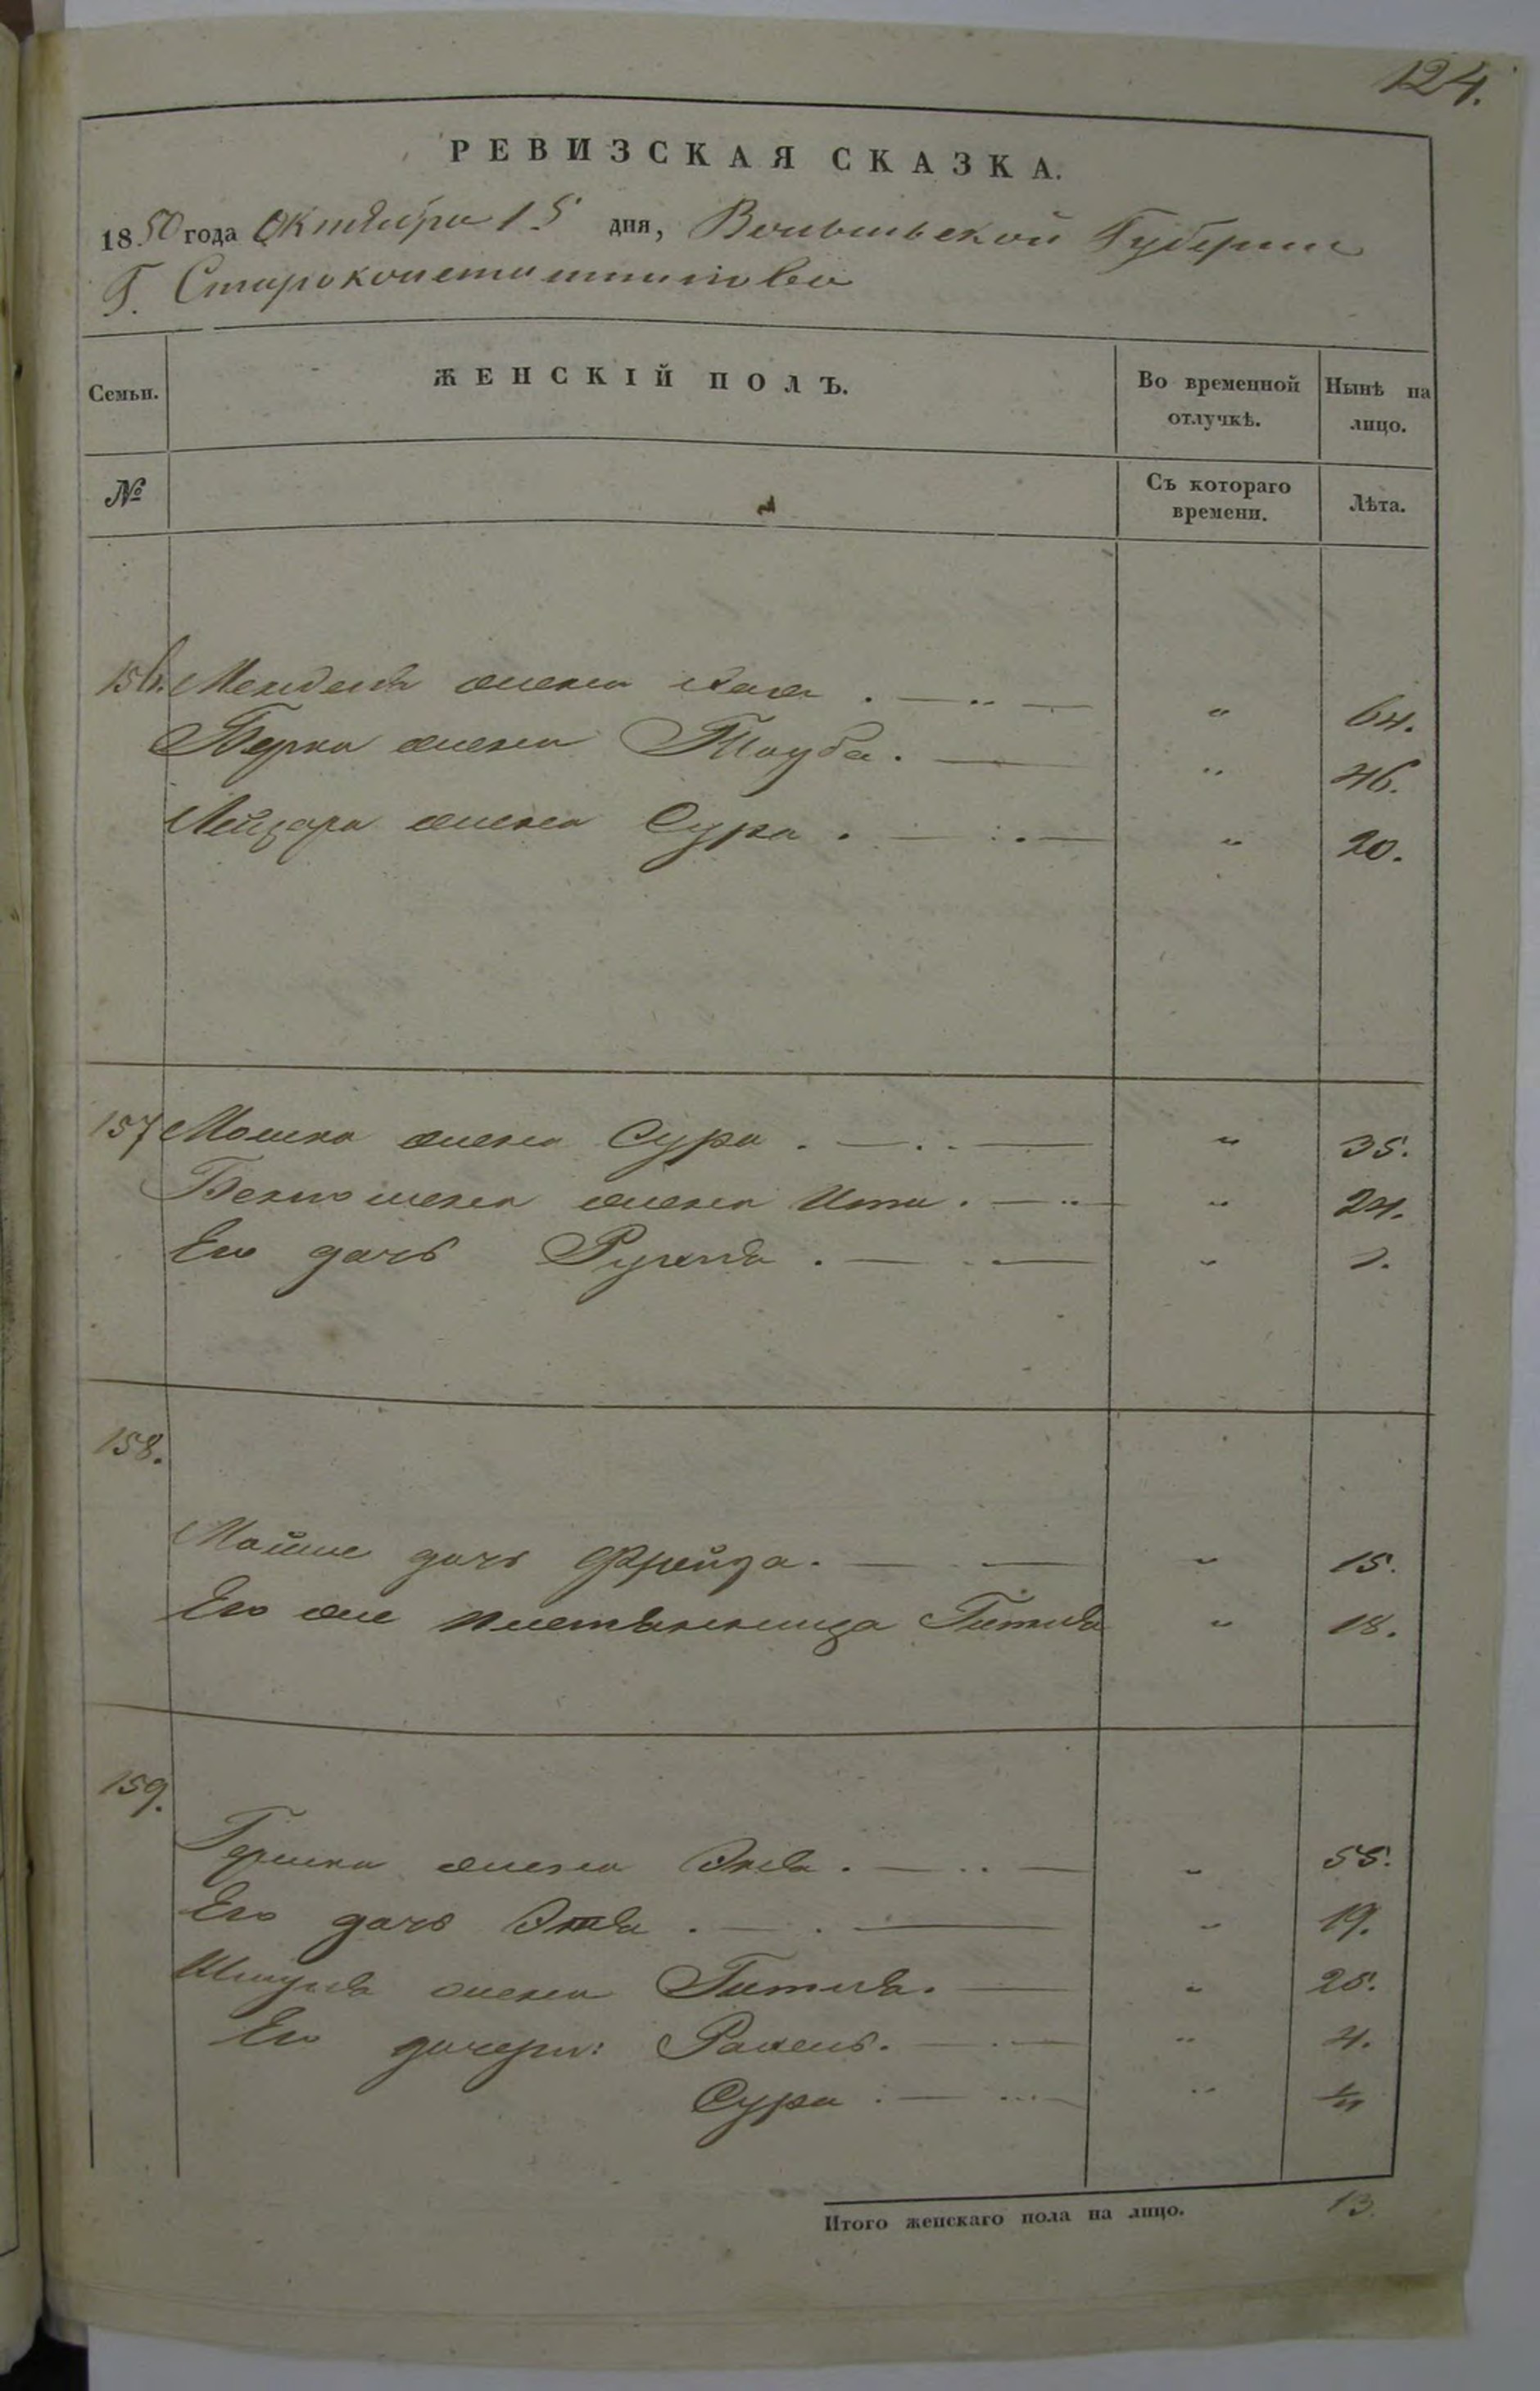 124.
РЕВИЗСКАЯ СКАЗКА.
1850 года Октября 15 дня, Волынской Губернии
Г. Староконстантинова
Семьи. ЖЕНСКІЙ ПОЛЪ. Во временной отлучкѣ. Нынѣ на лицо.
№ Съ котораго времени. Лѣта.
156. Менделя жена Хая . — " — " 64.
Берка жена Тауба . — " 46.
Лейзора жена Сура . — " 20.
157 Мошка жена Сура . — " 35.
жена Ита . — " 24.
Его дочь Рухля . — "
158.
Мойше дочь Фрейда . — " 15.
Его же племянница Гитля " 18.
159.
Гершка жена . — " 55.
Его дочь . — " 19.
Шмуля жена Гитля . — " 25.
Его дочери: Рахель . — " 4.
Сура . — "
Итого женскаго пола на лицо. 13.